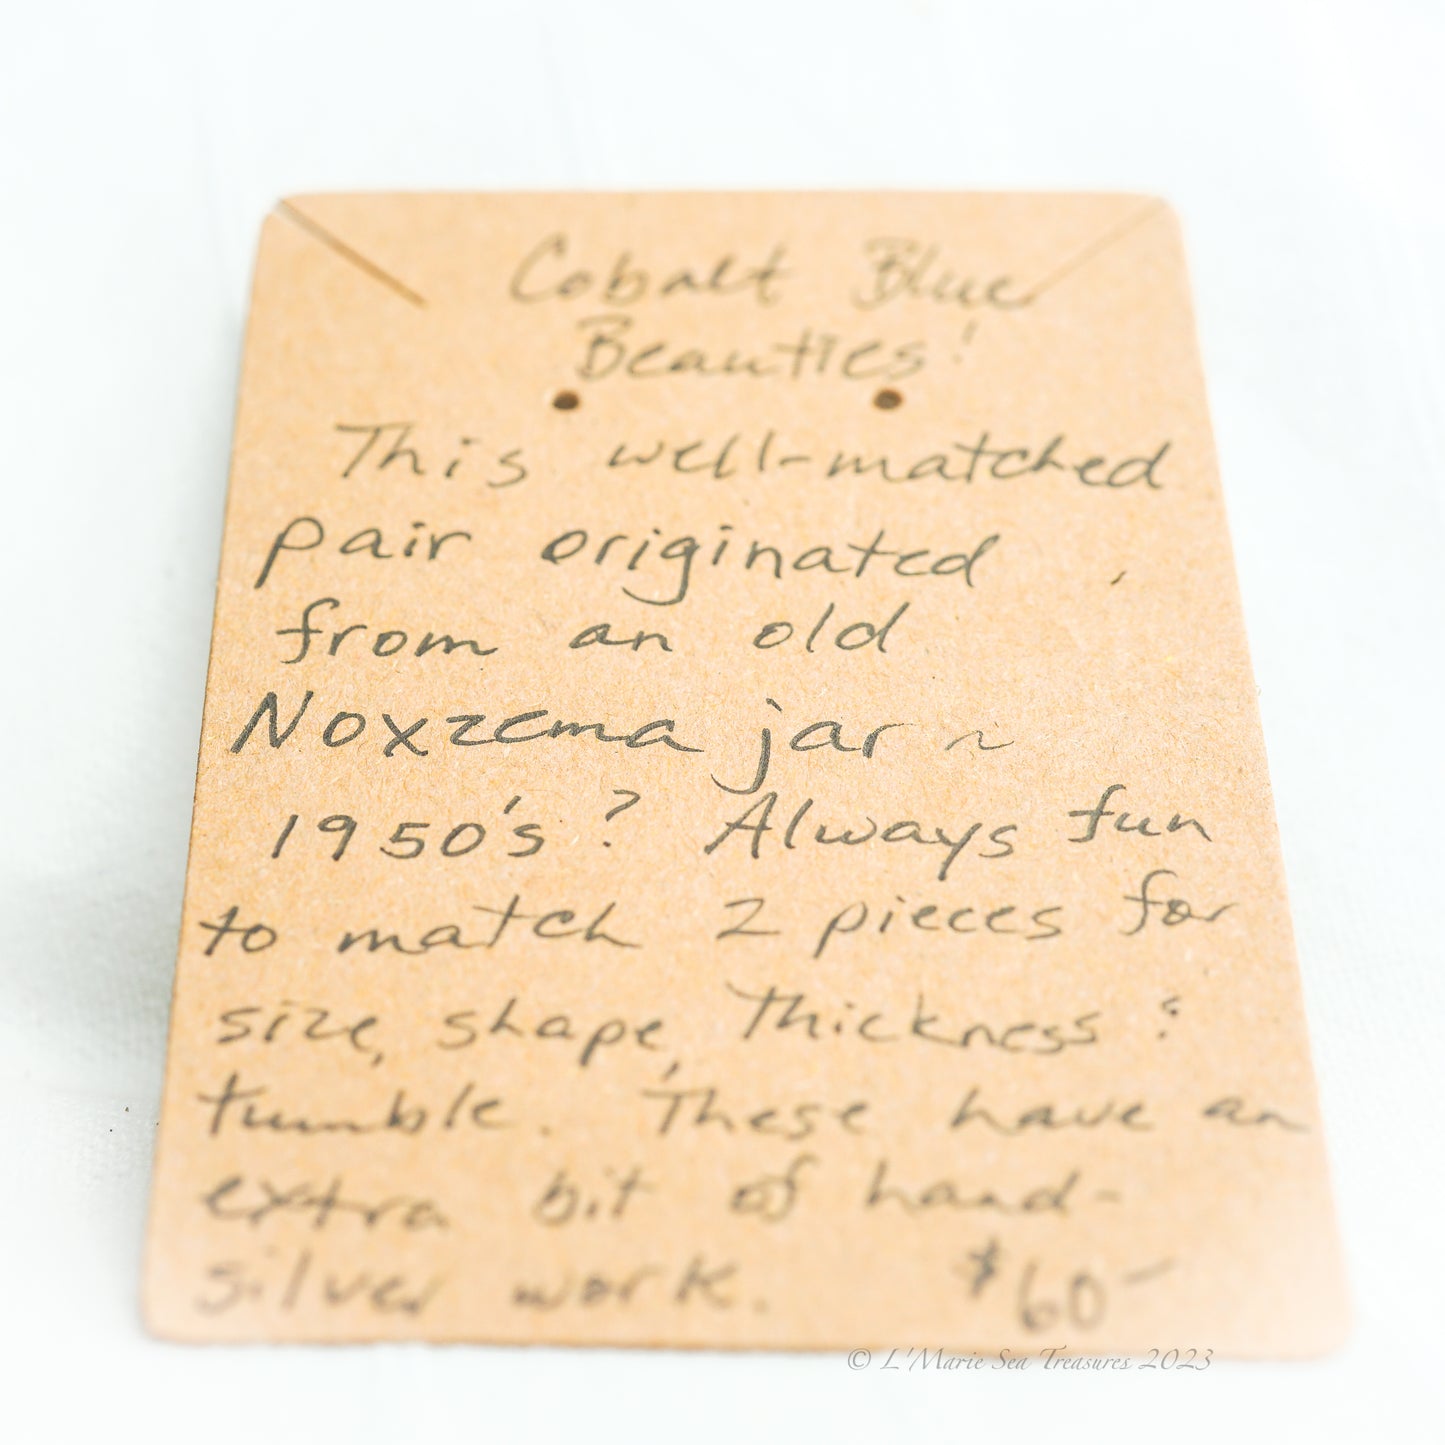 Cobalt Blue
Beauties!
This well-matched
pair originated
from an old
Noxzema jar ~
1950's? Always fun
to match 2 pieces for
size, shape, thickness &
tumble. These have an
extra bit of hand-
silver work. $60-
© L'Marie Sea Treasures 2023